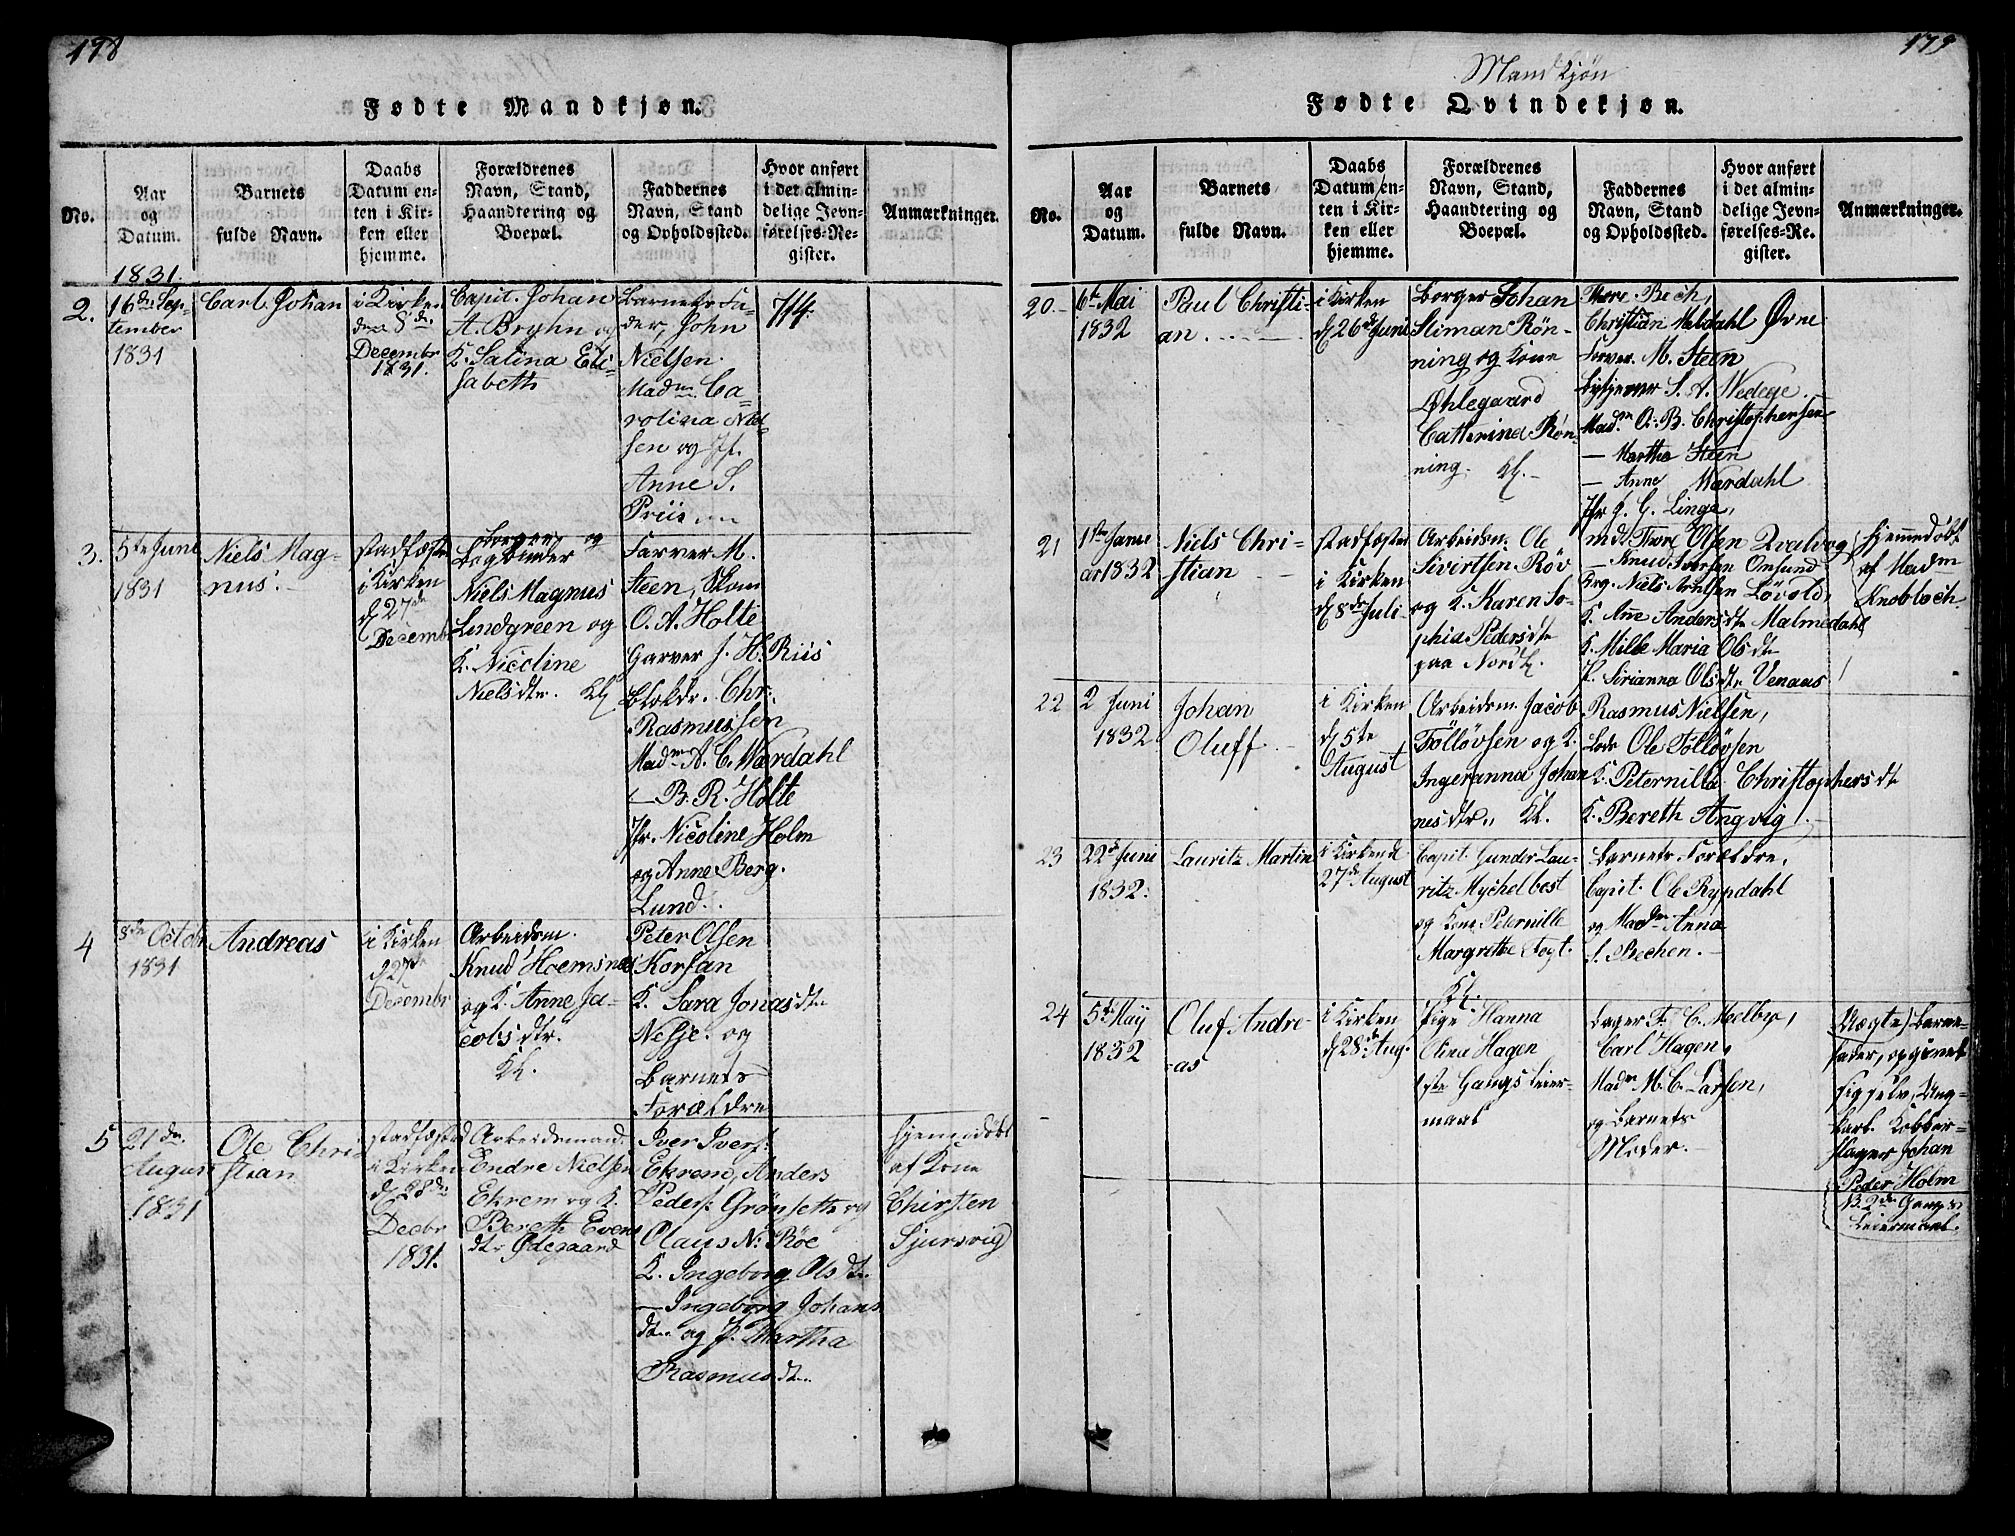 178
Fødte Mandkjøn.
No.
Aar
og
Datum.
Barnets
fulde Navn.
Daabs
Datum en-
ten i Kir-
ken eller
hjemme.
Forældrenes
Navn, Stand,
Haandtering og
Boepæl.
Faddernes
Navn, Stand
og Opholdssted.
Hvor anført
i det almin-
delige Jevn-
førelses-Re-
gister.
Anmærkninger.
1831.
2.
16de Sep-
tember
1831
Carl Johan
i Kirken
den 8de
Decembr
1831.
Capit. Johan
A. Bryhn og
K. Salina Eli-
sabeth
Barnets Fa-
der, John
Nielsen
Madm Ca-
rolina Niel-
sen og Jfr.
Anne S.
Priis
714.
3.
5te Juni
1831
Niels Mag-
nus.
stadfæstet
i Kirken
d 27de
Decembr
Borger og
Bogbinder
Niels Magnus
Lindgreen og
K. Nicoline
Nielsdtr. Kl
Farver M.
Steen, Skom
O. A. Holte
Garver J. H. Riis
Chr.
Rasmussen
Madm A. C. Wærdahl
— B. R. Holte
Jfr. Nicoline Holm
og Anne Berg.
Lund.
4
8de Octobr
1831
Andreas
i Kirken
d 27de
Decembr
Arbeidsm.
Knud Hoemsnes
og K. Anne Ja-
cobsdtr.
Kl.
Peter Olsen
Korsan
K. Sara Jonasdtr
Nesje. og
Barnets
Forældre
5
21de
August
1831
Ole Chri
stian
stadfæsted
i Kirken
d 28de
Decbr
1831.
Arbeidsmand.
Endre Nielsen
Ekrem og K.
Bereth Evens
dtr Ødegaard
Iver Ivers.
Ekrem, Anders
Peders. Grønseth og
Olaus N. Røe
K. Ingeborg Olsdtr.
— Ingeborg Johans
dtr og P. Martha
Rasmusdtr.
hjemmedøbt
af Kone
Chirsten
Sjursvig
179
Mandkjön
Fødte Qvindekjøn.
No.
Aar
og
Datum.
Barnets
fulde Navn.
Daabs
Datum en-
ten i Kir-
ken eller
hjemme.
Forældrenes
Navn, Stand,
Haandtering og
Boepæl.
Faddernes
Navn, Stand
og Opholdssted.
Hvor anført
i det almin-
delige Jevn-
førelses-Re-
gister.
Anmærkninger.
20.
6te Mai
1832
Paul Christi-
an
i Kirken
d 26de Juni
Borger Johan
Stiman Rön-
ning og Kone
Øhlegaard
Catherina Rön-
ning. Kl.
Thore Bech,
Christian Meldahl Ovne
Farver M. Steen
S. A. Wedege.
Madm O. B. Christophersen
— Martha Steen
— Anne Wærdahl
Jfr J. G. Linge.
21
1ste Janu
ar 1832
Niels Chri-
stian
stadfæstet
i Kirken
d 8de Juli
Arbeidsm. Ole
Sivertsen Röv
og K. Karen So-
phia Pedersdtr
paa Nordl.
md. Thore Olsen Qvalvog
— Knud Iversen Omsund
Brg. Niels Arntsen Lövold,
K. Ane Andersdtr Malmedahl
K. Mille Maria Olsdtr
P. Sirianna Olsdtr Venaas
hjemmedöbt
af Madm
Knobloch
22
2 Juni
1832
Johan
Oluff
i Kirken
d 5te
August
Arbeidsm. Jacob
Tölløvsen og K.
Ingeranna Johan
nesdtr. Kl.
Rasmus Nielsen,
Lods Ole Tölløvsen
K. Peternilla Christophersdtr
K. Bereth Angvig
23
22de Juni
1832.
Lauritz Martin
i Kirken d
27de August
Capit. Gunder Lau-
ritz Mychelbost
og Kone Peternille
Margrethe Fogt.
Kl.
Barnets Forældre,
Capit. Ole Rypdahl
og Madm Anna
S. Bechen.
24
5te May
1832
Oluf Andre-
as
i Kirken
d 28de Aug.
Pige Hanna
Olina Hagen
1ste Gangs Leier-
maal
Bager F. C. Melby,
Carl Hagen,
Madm M. C. Larsen,
og Barnets
Moder.
(Uægte) Barne-
fader, opgivet
sig selv, Ung-
karl Kobber-
slager Johan
Peder Holm
N. 2den Gangs
Leiermaal.